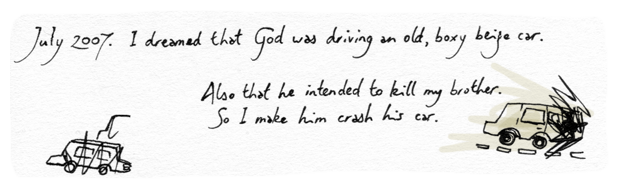 July 2007. I dreamed that God was driving an old, boxy beige car.
Also that he intended to kill my brother.
So I make him crash his car.